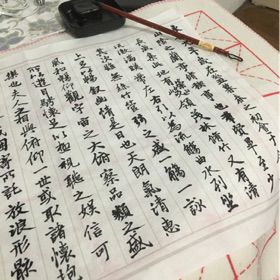 群賢畢至少
咸集此地有崇山峻領茂林脩竹又有清
流激湍暎帶左右引以為流觴曲水列坐
其次雖無絲竹管弦之盛一觴一詠
亦足以暢敘幽情是日也天朗氣清惠
風和暢仰觀宇宙之大俯察品類之盛
所以遊目騁懷足以極視聽之娛信可
樂也夫人之相與俯仰一世或取諸懷抱
因寄所託放浪形骸